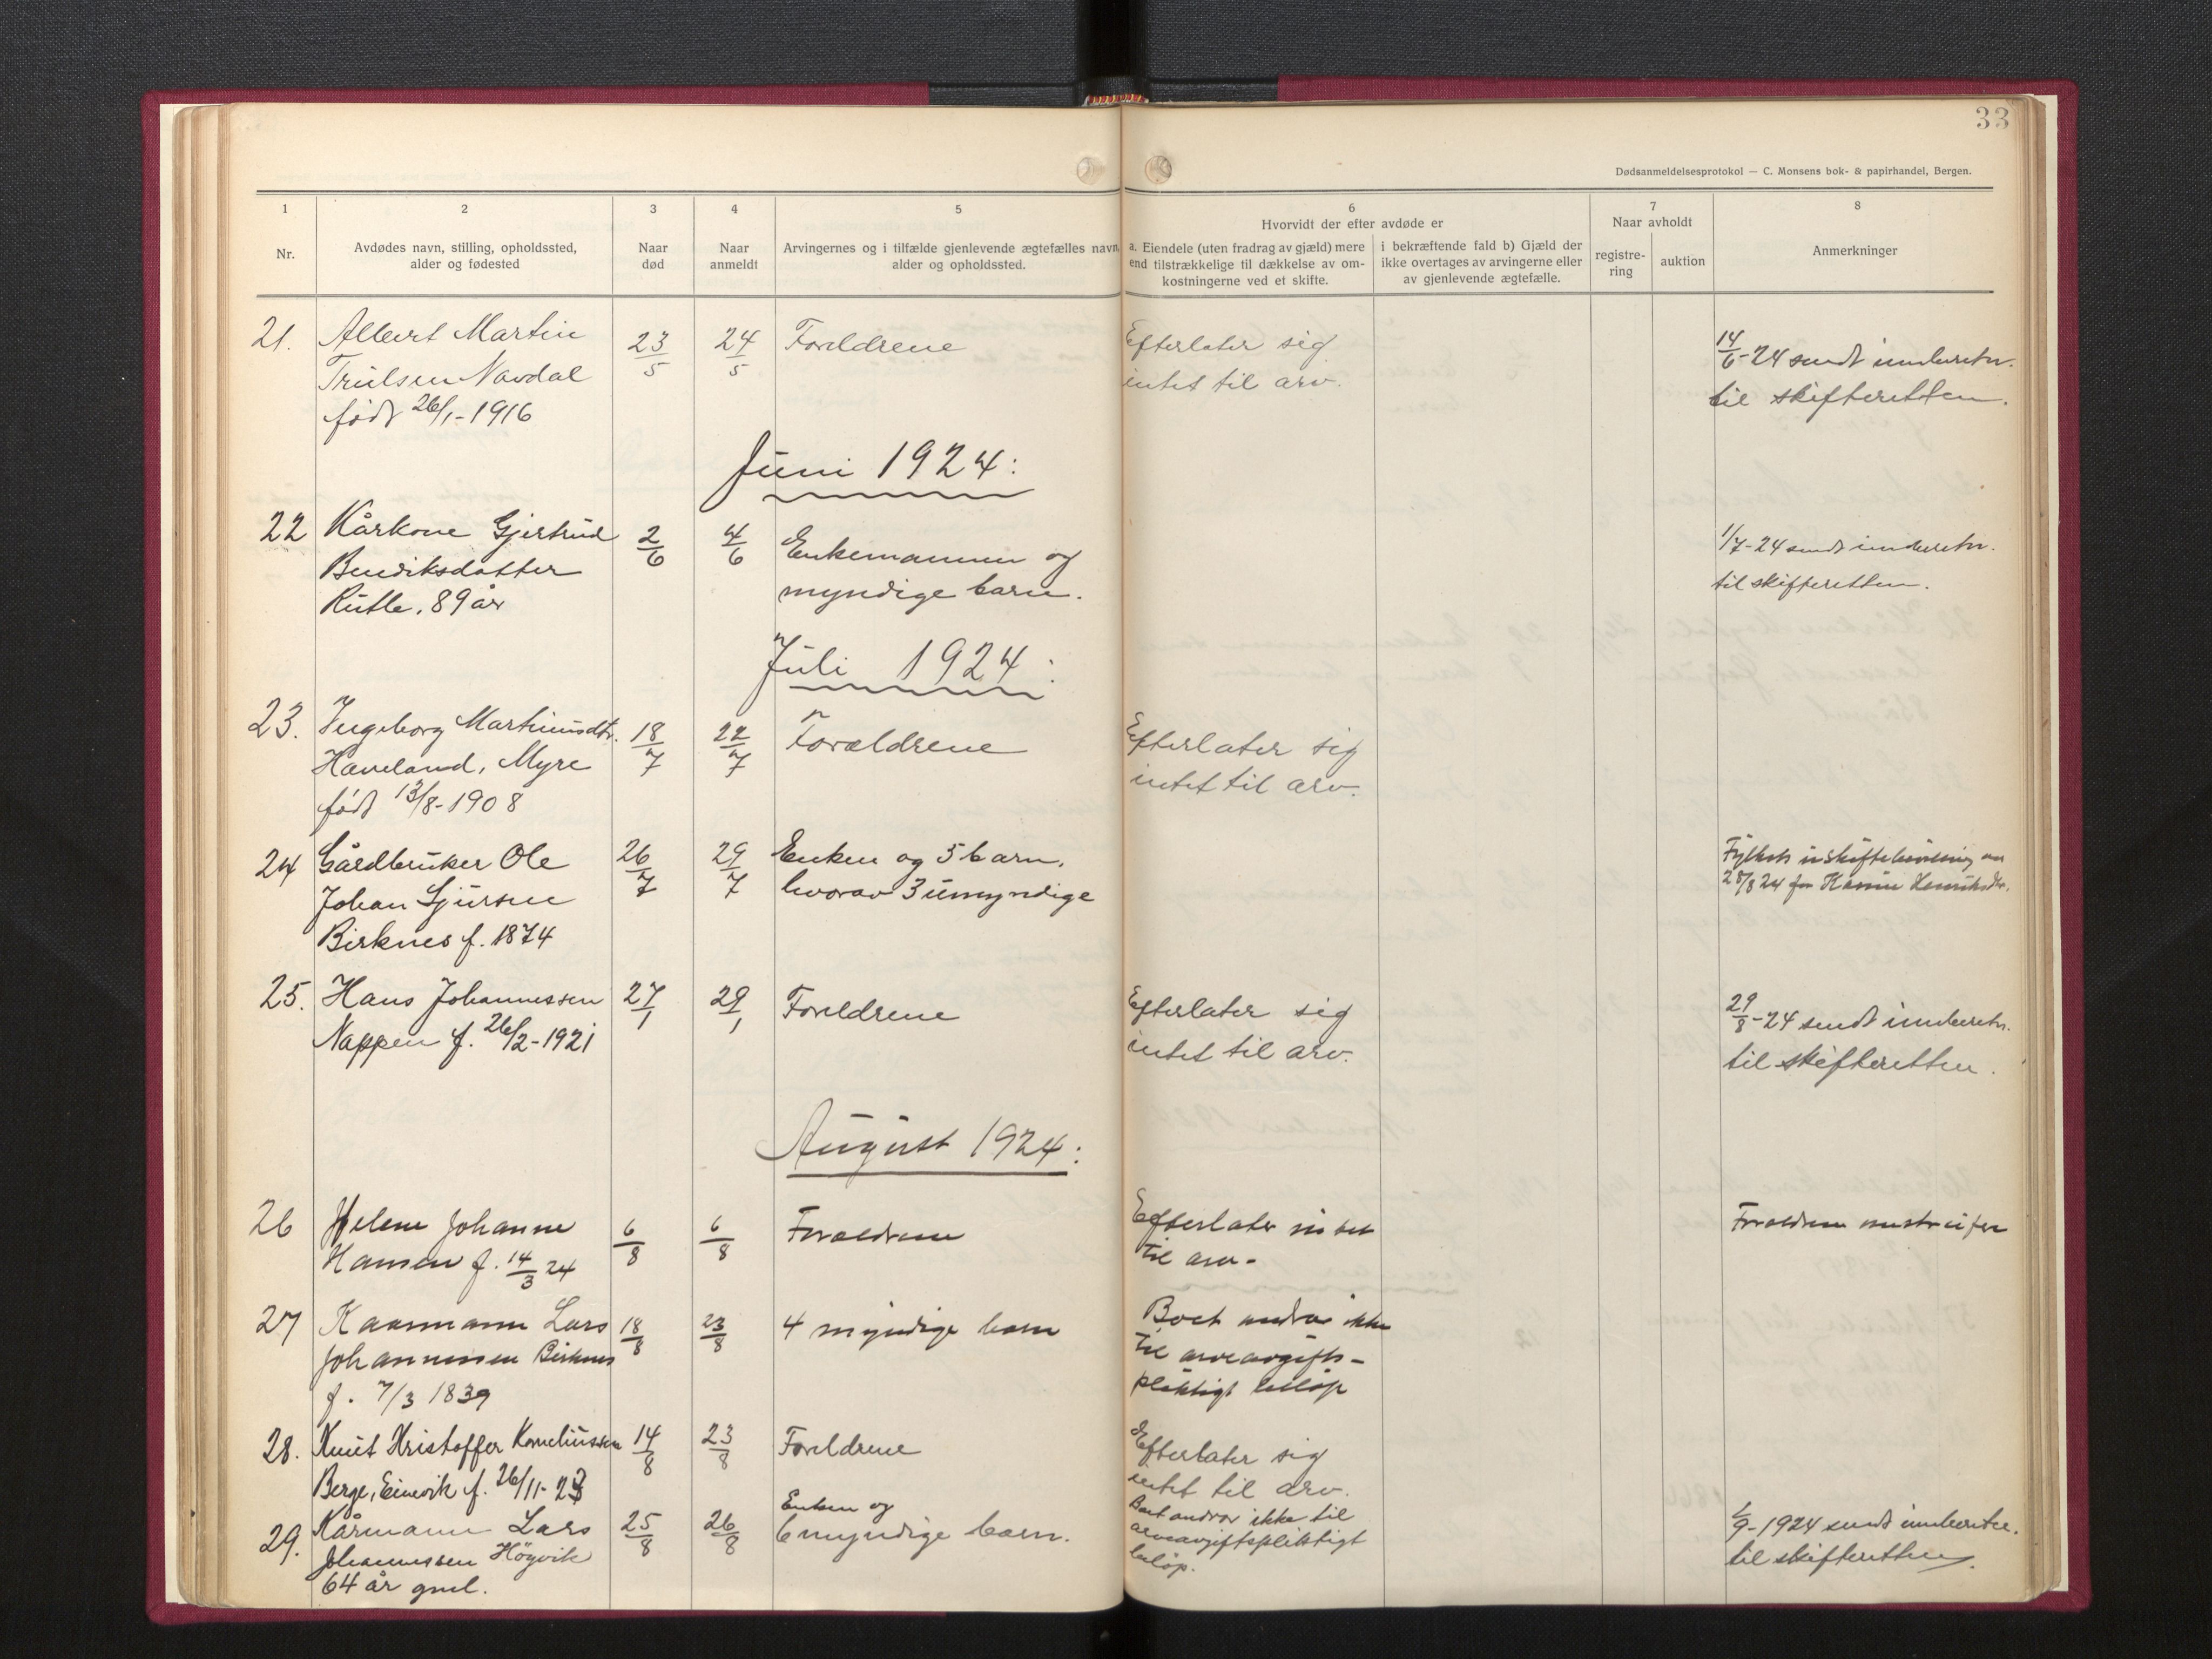 33
Dødsanmeldelsesprotokol — C. Monsens bok- & papirhandel, Bergen.
1
Nr.
2
Avdødes navn, stilling, opholdssted,
alder og fødested
3
Naar
død
4
Naar
anmeldt
5
Arvingernes og i tilfælde gjenlevende ægtefælles navn,
alder og opholdssted.
6
Hvorvidt der efter avdøde er
a. Eiendele (uten fradrag av gjæld) mere
end tilstrækkelige til dækkelse av om-
kostningerne ved et skifte.
i bekræftende fald b) Gjæld der
ikke overtages av arvingerne eller
av gjenlevende ægtefælle.
7
Naar avholdt
registre-
ring
auktion
8
Anmerkninger
21.
Albert Martin
Trulsen Navdal
født 26/1-1916
23/5
24/5
Foreldrene
Efterlater sig
intet til arv.
14/6-24 sendt underetn.
til skifteretten.
Juni 1924:
22
Kårkone Gjertrud
Bendiksdatter
Rutle, 89 år
2/6
4/6
Enkemannen og
myndige barn.
1/7-24 sendt underetn.
til skifteretten.
Juli 1924:
23.
Ingeborg Martinusdtr.
Haveland, Myre
født 13/8-1908
18/7
22/7
Forældrene
Efterlater sig
intet til arv.
24
Gårdbruker Ole
Johan Sjursen
Birknes f. 1874
26/7
29/7
Enken og 5 barn,
hvorav 3 umyndige
Fylkets uskiftebevilling av
28/8 24 for Henriksdtr.
25.
Hans Johannessen
Nappen f. 26/2-1921
27/1
29/1
Foreldrene
Efterlater sig
intet til arv.
29/8-24 sendt underetn.
til skifteretten.
August 1924:
26
Helene Johanne
Hansen f. 14/3 24
6/8
6/8
Forældrene
Efterlater intet
til arv.
Forældrene
27
Kaarmann Lars
Johannessen Birknes
f. 7/3 1839
18/8
23/8
4 myndige barn
Boet andrar ikke
til arveavgifts-
pliktigt beløp
28.
Knut Kristoffer Korneliussen
Berge, Eimevik f. 26/11-23
14/8
23/8
Foreldrene
Efterlater sig
intet til arv.
29.
Kårmann Lars
Johannessen Høyvik
64 år gml.
25/8
26/8
Enken og
6 myndige barn.
Boet andrar ikke til
arveavgiftspliktigt
beløp.
/9-1924 sendt underetn.
til skifteretten.